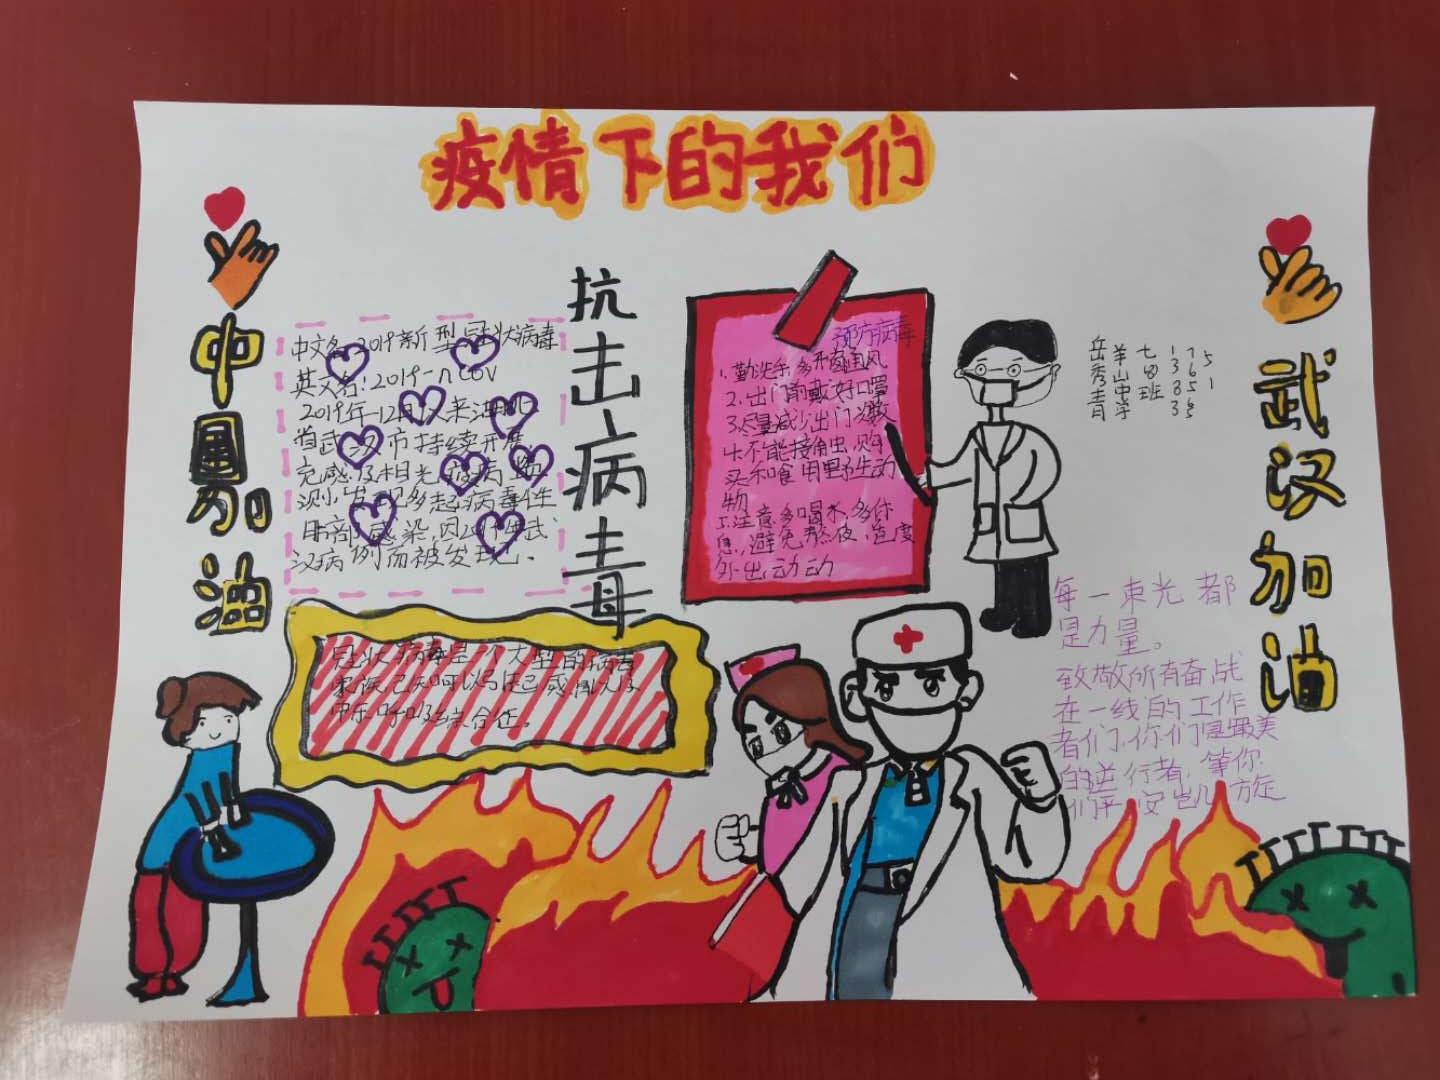 疫情下的我们
中國加油
抗击病毒
武汉加油
中文名:2019新型冠状病毒
英文名:2019-nCoV
2019年12月以来湖北
省武汉市持续开展
流感及相关疾病监
测,发现多起病毒性
肺部感染,因2019年武
汉病例而被发现.
预防病毒
1.勤洗手,多开窗通风
2.出门前戴好口罩
3.尽量减少出门次数
4.不能接触,购
买和食用野生动
物
5.注意多喝水,多休
息,避免熬夜,适度
外出,动动
岳秀青
羊山中学
七8班
每一束光都
是力量。
致敬所有奋战
在一线的工作
者们,你们是最美
的逆行者,等你
们平安凯旋
冠状病毒是一个大型的病毒
家族,已知可以引起感冒以及
中东呼吸综合征。